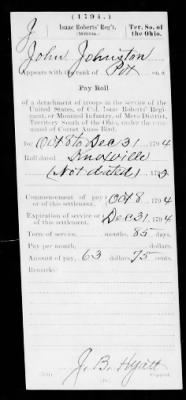 (1794.)
J | Isaac Roberts' Reg't, | Ter. So. of
(Militia.) | the Ohio.
John Johnston
Appears with the rank of Pvt on a
Pay Roll
of a detachment of troops in the service of the
United States, of Col. Isaac Roberts' Regi-
ment, or Mounted Infantry, of Mero District,
Territory South of the Ohio, under the com-
mand of Cornet Amos Bird.
for Oct 8 to Dec 31, 1794
Roll dated Knoxville
(Not dated), 179
Commencement of pay
or of this settlement, Oct 8, 1794
Expiration of service or
of this settlement, Dec 31, 1794
Term of service, months, 85 days.
Pay per month, dollars
Amount of pay, 63 dollars 75 cents.
Remarks:
J. B. Hyatt
Copyist.